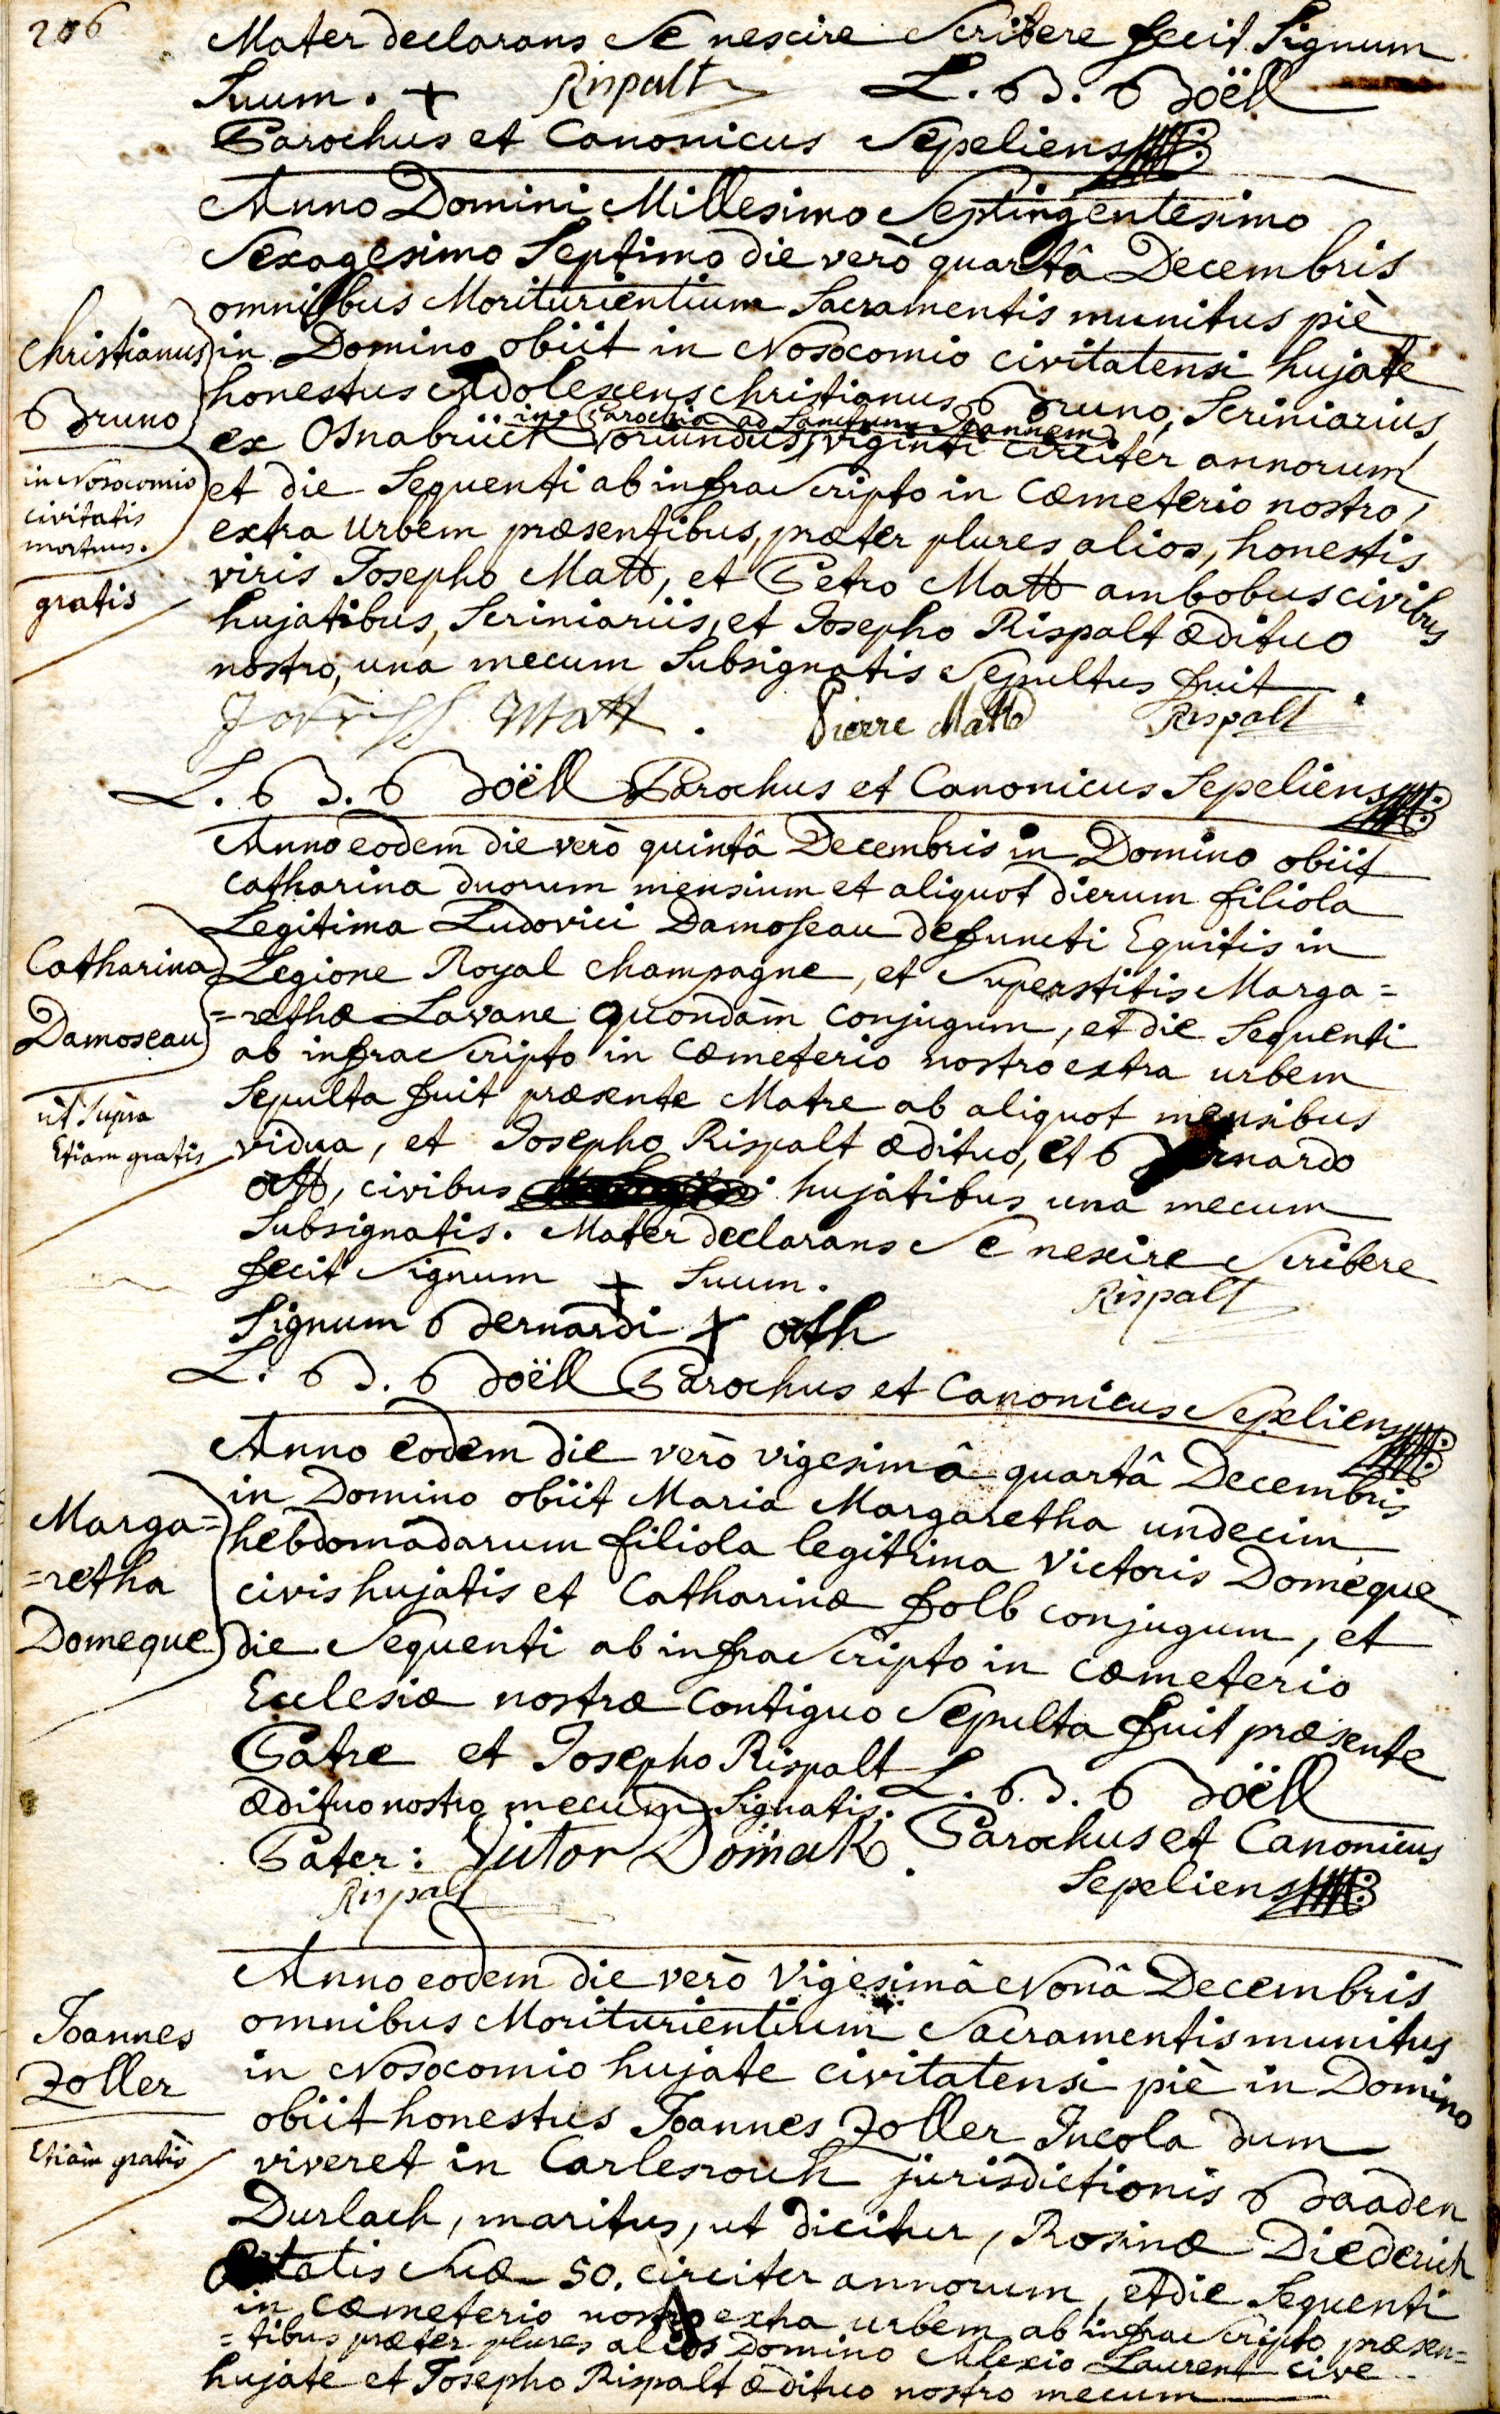 206
Mater declarans se nescire scribere fecit signum
suum. + Rispalt L. B. Boëll
Parochus et Canonicus Sepeliens
Anno Domini Millesimo Septingentesimo
Sexagesimo Septimo die verò quartâ Decembris
omnibus Moriturientium Sacramentis munitus piè
in Domino obiit in Nosocomio civitatensi hujate
honestus Adolescens Christianus Bruno, Scriniarius,
in Parochia ad Sanctum Joannem
ex Osnabrück oriundus, viginti circiter annorum
et die Sequenti ab infrascripto in Cœmeterio nostro
extra Urbem præsentibus, præter plures alios, honestis
viris Josepho Matt, et Petro Matt ambobus civibus
hujatibus, Scriniariis, et Josepho Rispalt ædituo
nostro, una mecum Subsignatis Sepultus fuit.
Christianus
Bruno
in Nosocomio
civitatis
mortuus.
gratis
Matt. Pierre Matt Rispalt
L. B. Boëll Parochus et Canonicus Sepeliens
Anno eodem die verò quintâ Decembris in Domino obiit
Catharina duorum mensium et aliquot dierum filiola
Legitima Ludovici Damoseau defuncti Equitis in
Legione Royal Champagne, et Superstitis Marga=
=rethæ Lavane quondàm conjugum, et die Sequenti
ab infrascripto in Cœmeterio nostro extra urbem
Sepulta fuit præsente Matre ab aliquot mensibus
vidua, et Josepho Rispalt ædituo, et Bernardo
ott, civibus hujatibus una mecum
Subsignatis. Mater declarans Se nescire Scribere
fecit Signum + Suum. Rispalt
Signum Bernardi + oth
Catharina
Damoseau
ut Supra
Etiam gratis
L. B. Boëll Parochus et Canonicus Sepeliens
Anno eodem die verò vigesimâ quartâ Decembris
in Domino obiit Maria Margaretha undecim
hebdomadarum filiola legitima Victoris Domeque
civis hujatis et Catharinæ folb conjugum, et
die Sequenti ab infrascripto in Cœmeterio
Ecclesiæ nostræ Contiguo Sepulta fuit præsente
Patre et Josepho Rispalt
ædituo nostro mecum Signatis.
Pater: Victor Domek
Rispalt
L. B. Boëll
Parochus et Canonicus
Sepeliens
Marga=
=retha
Domeque
Anno eodem die verò Vigesimâ Nonâ Decembris
omnibus Moriturientium Sacramentis munitus
in Nosocomio hujate civitatensi piè in Domino
obiit honestus Joannes Zoller Incola dum
viveret in Carlesrouh jurisdictionis Baaden
Durlach, maritus, ut dicitur, Rosinæ Diederich
Ætatis Suæ 50. circiter annorum, et die Sequenti
in Cœmeterio nostro extra urbem ab infrascripto præsen=
=tibus præter plures alios Domino Alexio Laurent cive
hujate et Josepho Rispalt ædituo nostro mecum
Joannes
Zoller
Etiam gratis